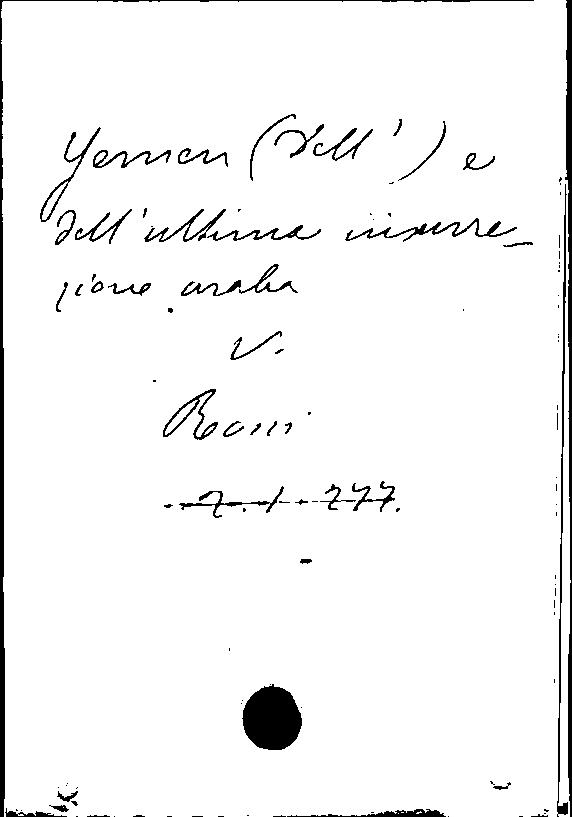 Yemen (Dell') e
dell'ultima insurre-
zione araba
V.
Rossi
2.1.277.